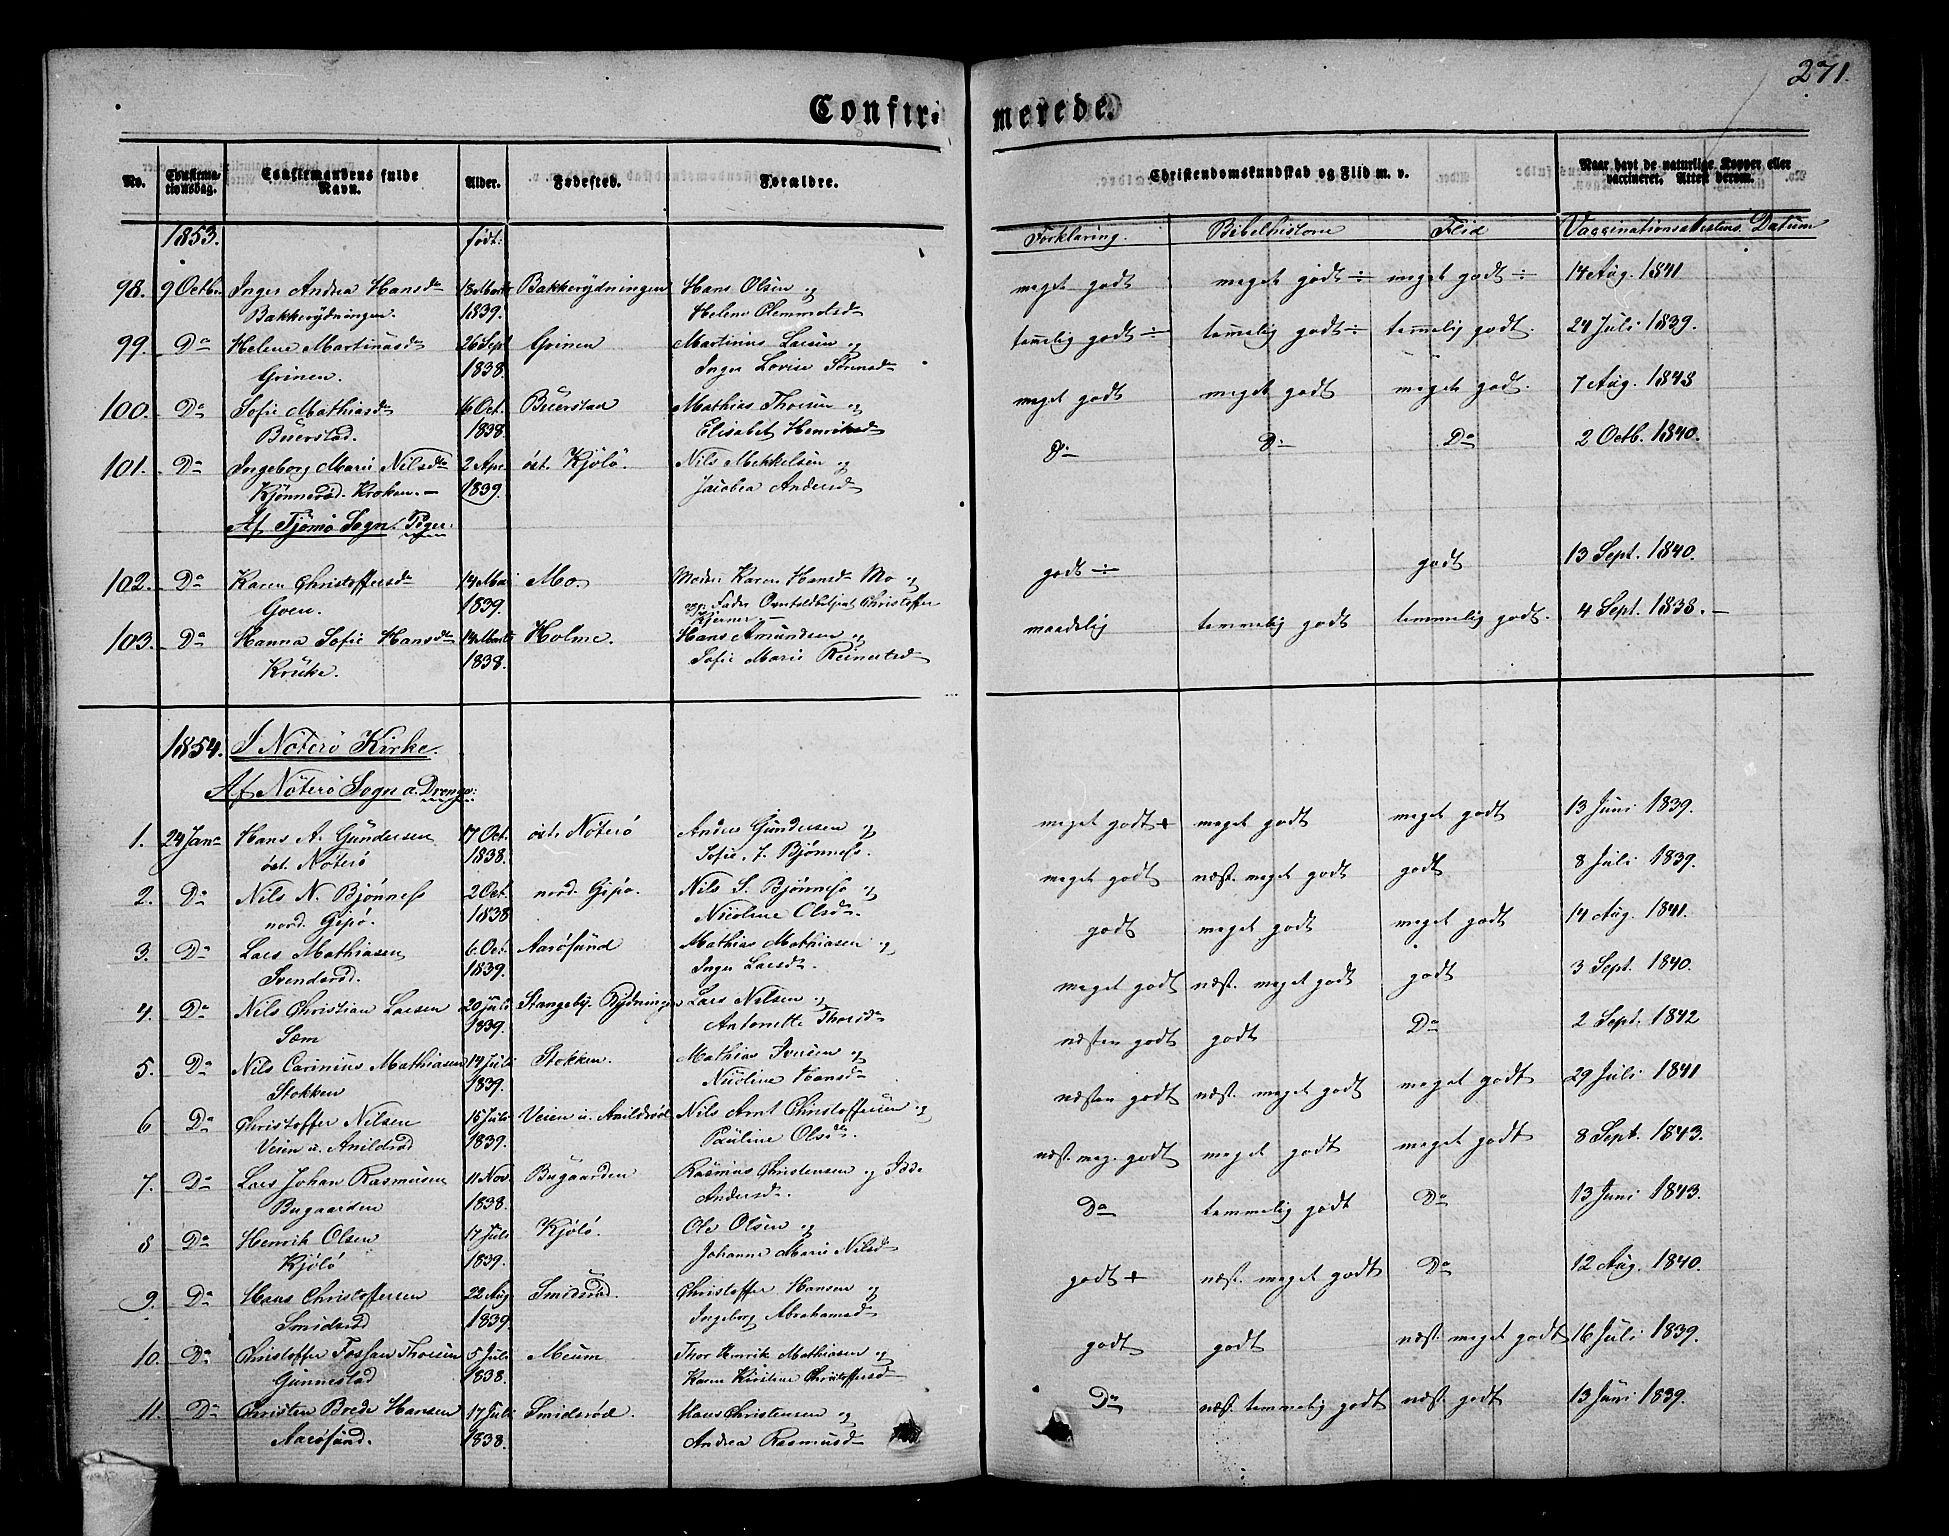 271.
Confirmerede.
No. Confirmationsdag. Confirmandens fulde Navn. Alder. Fødested. Forældre. Christendomskundskab og Flid m. v. Naar havt de naturlige Kopper eller vaccineret. Attest derom.
1853. født: Forklaring. Bibelhistorie Flid Vaccinationsattestens Datum
98. 9 Octbr. Inger Andrea Hansdtr 13 Marts Bakkerydningen Hans Olsen og meget godt meget godt ÷ meget godt ÷ 14 Aug. 1841
Bakkerydningen. 1839. Helene Clemmetsd
99. Do Helene Martinusd 26 Sept Grinen Martinus Larsen og temelig godt ÷ temelig godt ÷ temelig godt. 24 Juli 1839.
Grinen. 1838. Inger Lovise Sørensd
100. Do Sofie Mathiasd 16 Oct. Buerstad Mathias Thorsen og meget godt meget godt meget godt. 7 Aug. 1843
Buerstad. 1838. Elisabet Henriksd
101. Do Ingeborg Marie Nilsdtr 2 Apr. øst. Kjølö. Nils Mekkelsen og Do Do Do 2 Octb. 1840.
Kjønnerød. Kroken. 1839. Jacobea Andersd
Af Tjømø Sogn. Piger.
102. Do Karen Christoffersd 14 Mai Mo. Moder Karen Hansd Mo og godt ÷ godt 13 Sept. 1840.
Goen. 1839. Fader Christoffer
Kjerner
103. Do Hanna Sofie Hansd 13 Marts Holme. Hans Amundsen og maadelig temmelig godt temmelig godt. 4 Sept. 1838.
Krüke. 1838. Sofie Marie Reinertsd
1854. I Nøterø Kirke.
Af Nøterø Sogn a. Drenge:
1. 24 Jan. Hans A. Gundersen 17 Oct. øst. Nøterø Anders Gundersen og meget godt + meget godt meget godt 13 Juni 1839.
øst. Nøterø 1838. Sofie J. Bjønness.
2. Do Nils N. Bjønness 2 Oct. nord. Gipø. Nils S. Bjønness og meget godt næst. meget godt godt 8 Juli 1839.
nord. Gipø. 1838 Nicoline Olsd.
3. Do Lars Mathiasen 6 Oct. Aarøsund Mathias Mathiasen og godt meget godt meget godt 14 Aug. 1841.
Svendsrød. 1839. Inger Larsd.
4. Do Nils Christian Larsen 20 Juli Stangeby. Rydningen Lars Nilsen og meget godt næst. meget godt godt 3 Sept. 1840.
Sæm 1839. Antonette Thorsd
5. Do Nils Carinius Mathiasen 14 Juli Stokken. Mathias Iversen og næsten godt godt Do 2 Sept. 1842
Stokken 1839. Nicoline Hansd
6 Do Christoffer Nilsen 15 Juli Veien u. Anildsrød Nils Arnt Christoffersen og næsten godt næst. meget godt meget godt 29 Juli 1841
Veien u. Anildsrød 1839. Pauline Olsd.
7. Do Lars Johan Rasmusen 11 Nov. Bugaarden Rasmus Christensen og Ide næst. meg. godt meget godt meget godt 8 Sept. 1843.
Bugaarden 1838. Andersd.
8 Do Henrik Olsen 17 Juli Kjölö. Ole Olsen og Do temmelig godt Do 13 Juni 1843.
Kjölö 1839. Johanne Marie Nilsd
9. Do Hans Christoffersen 22 Aug Smidsrød. Christoffer Hansen og godt + næst. meget godt Do 12 Aug. 1840.
Smidsrød 1839. Ingeborg Abrahamsd
10. Do Christoffer Thorsen 5 Juli Meum Thor Henrik Mathiasen og godt godt næst. meget godt 16 Juli 1839.
Gunnestad 1838. Karen Kirstine Christoffersd
11. Do Christen Brede Hansen 17 Juli Smidsrød. Hans Christensen og Do næst. temmelig godt næst. godt 13 Juni 1839.
Aarøsund. 1838. Andrea Rasmusd